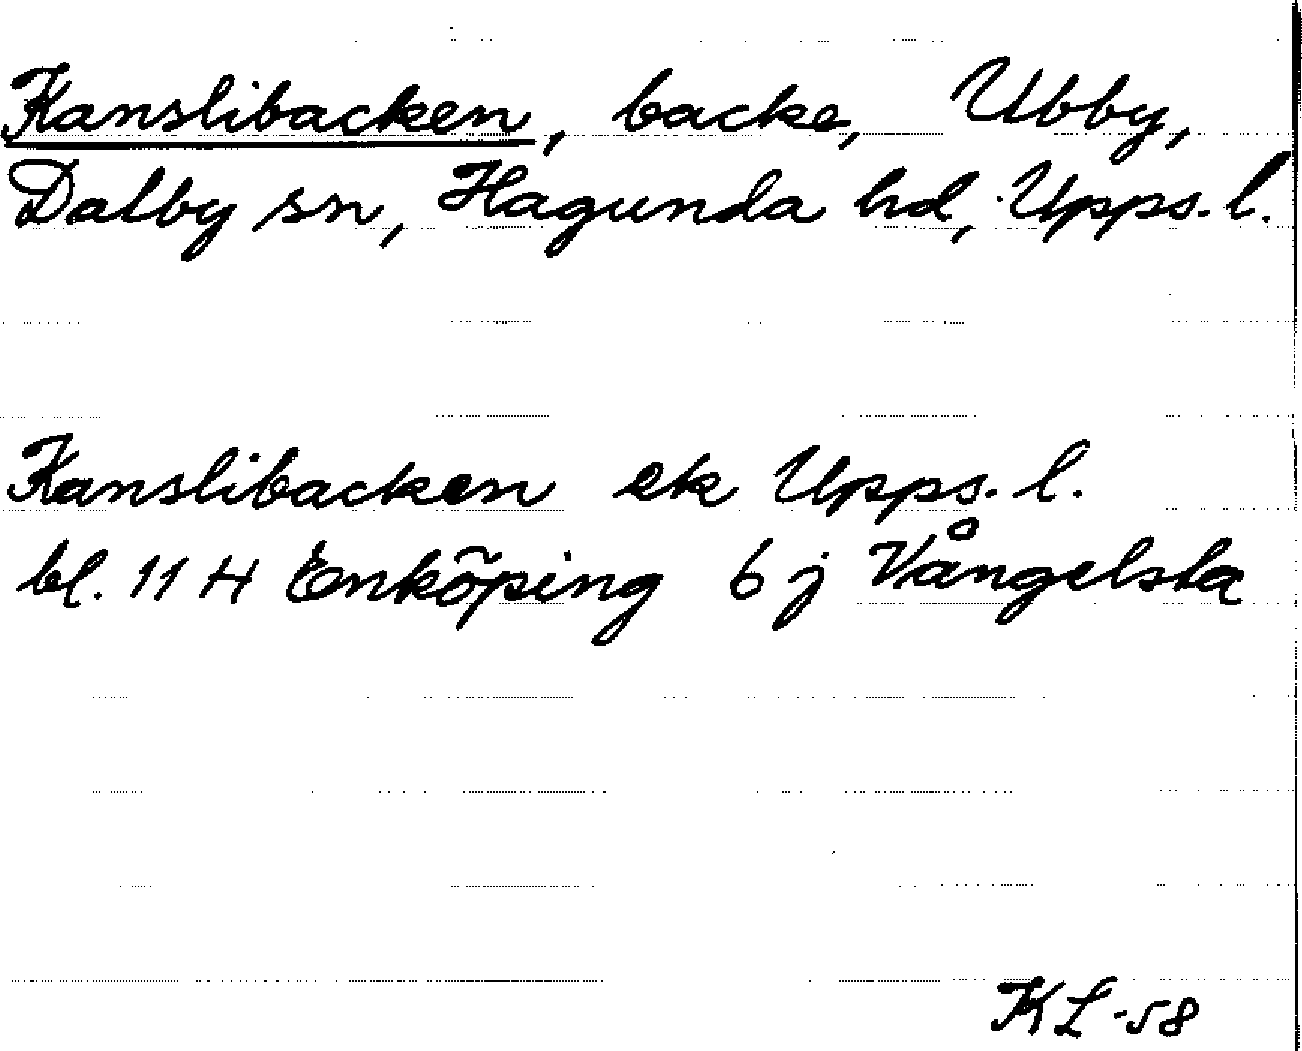 Kanslibacken, backe, Ubby,
Dalby sn, Hagunda hd, Upps. l.
Kanslibacken ek Upps. l.
bl. 11 H Enköping 6 j Vångelsta
KL-58